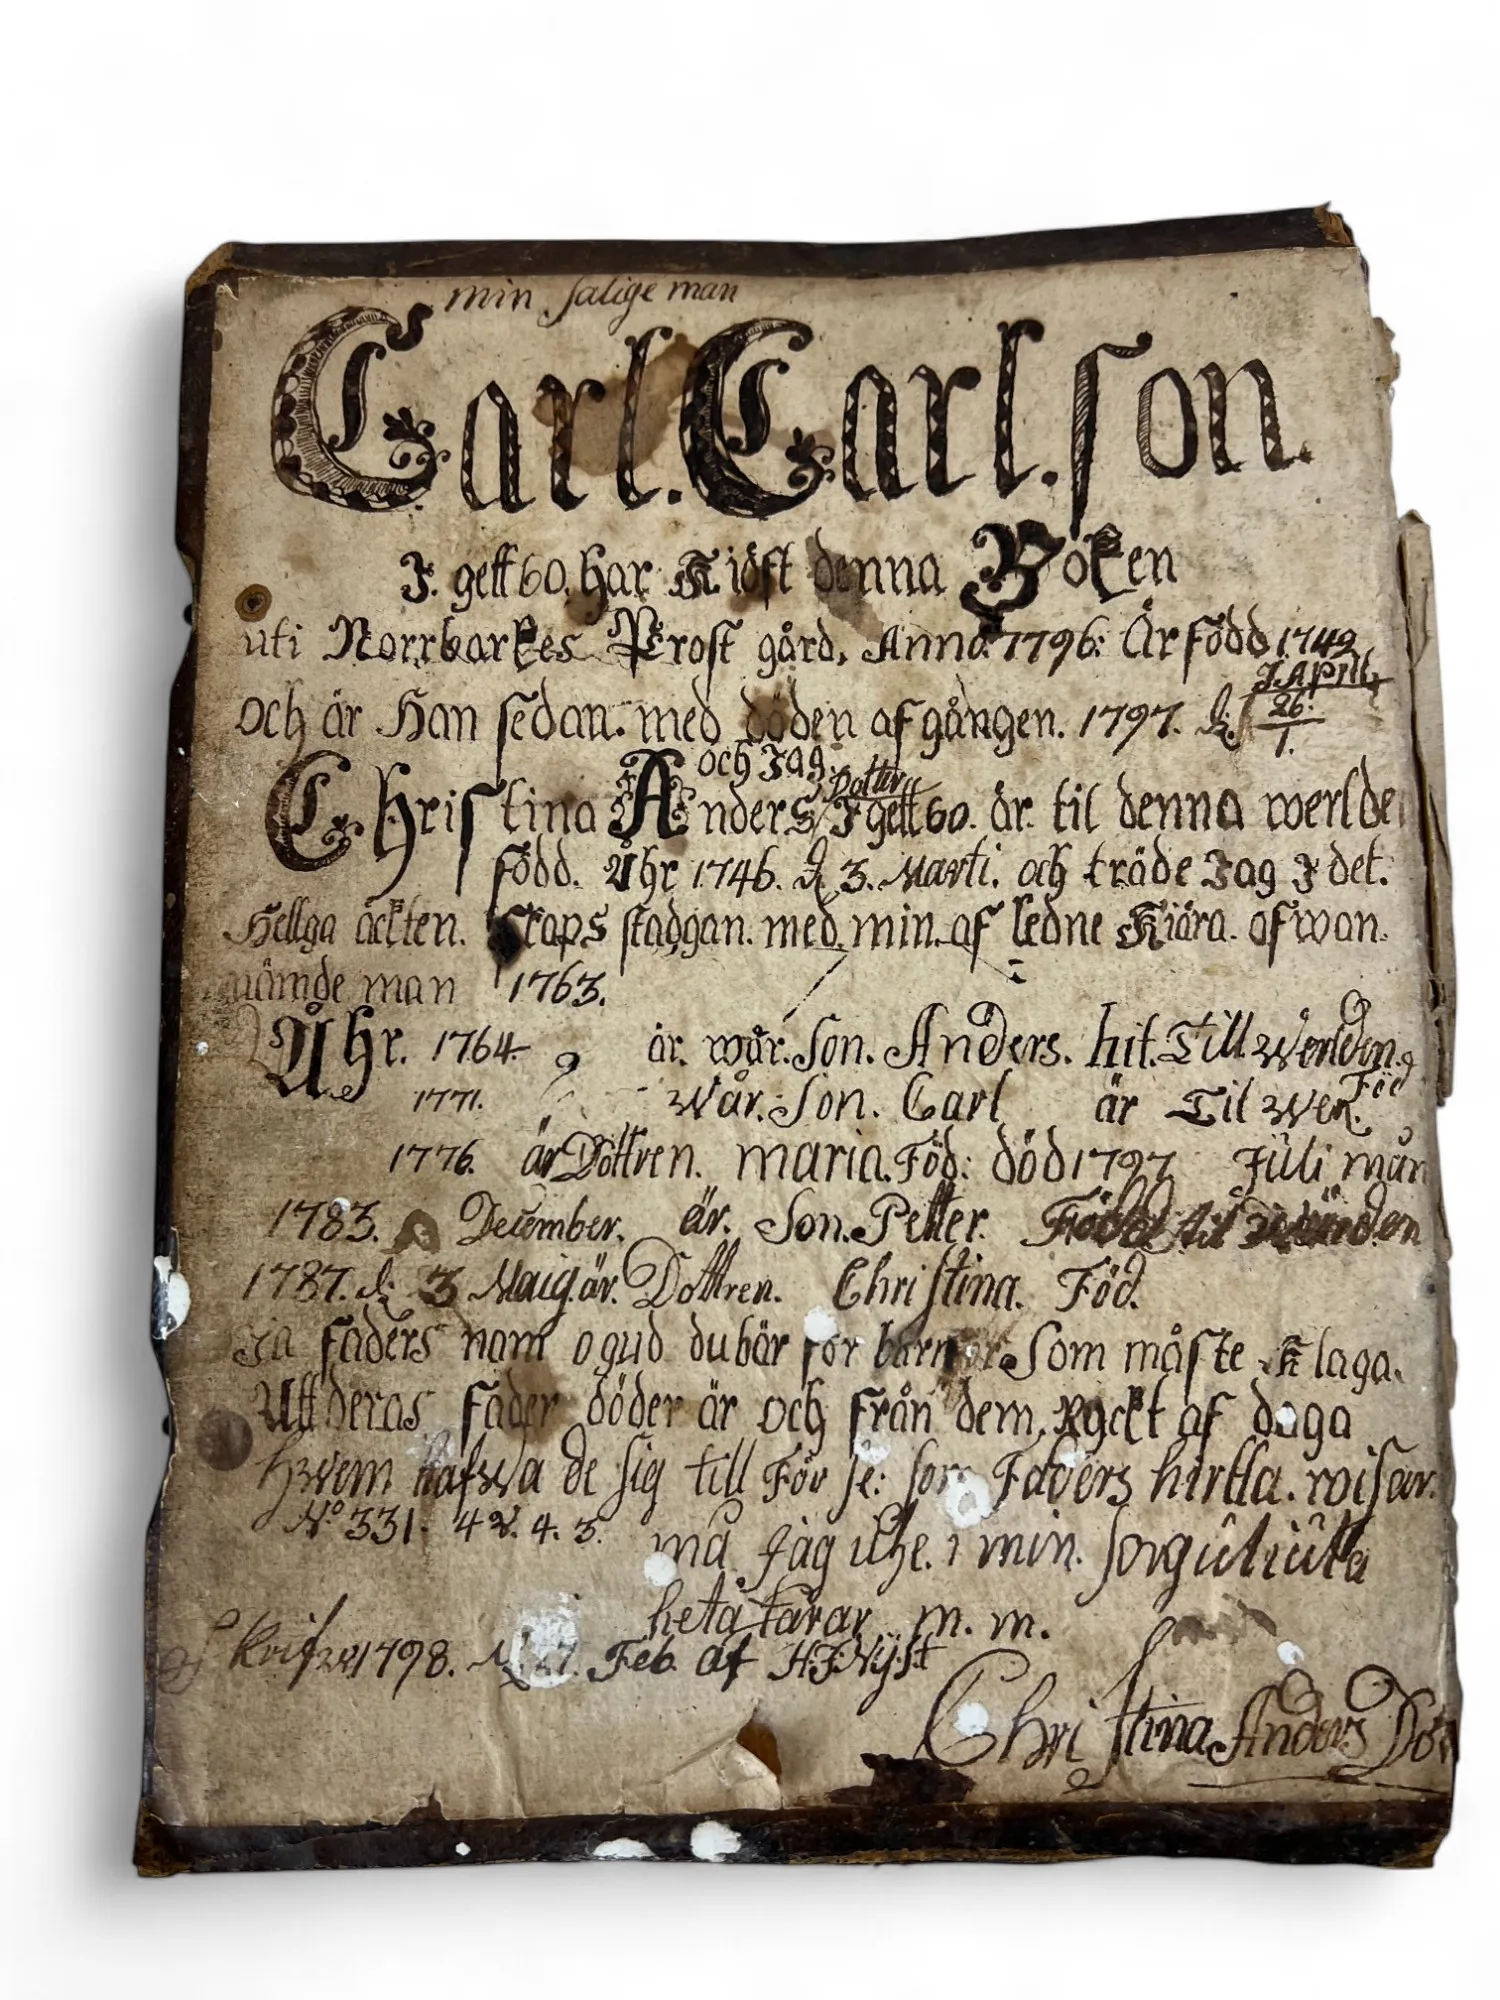 min salige man
Carl. Carl. son.
I. gett 60. har Kiöst denna Boken
uti Norrbarkes Prost gård, Anno 1796: Är född 1749
I April
och är Han sedan. med döden af gången. 1797. d. 26.
1.
och Jag
Dotter
Christina Anders I gett 60. är. til denna werlde
född. Åhr 1746. d. 3. Marti. och träde Jag I det.
Hellga äckten. skaps stadgan. med. min. af ledne Kiära. ofwan.
nämde man 1763.
Åhr. 1764. är. wår. Son. Anders. hit. Till werlden.
Föd
1771. wår. Son. Carl är Til wer.
1776. är Dottren. maria. Föd: död 1797 Juli mån
1783. December. är. Son. Petter.
1787. d. 3 Maig. är. Dottren. Christina. Föd.
Ja faders nam o gud du bär for Som måste Klaga.
Utt deras fader döder är och från dem, Ryckt af daga
hwem hafwa de sig till För se: som Faders hirtta. wisar.
No 331. 4 v. 4. 3. må Jag uthe. i min. sorg
heta tårar m. m.
Skrifwe 1798. 27. Feb. af H. J. Nyst
Christina Anders Do